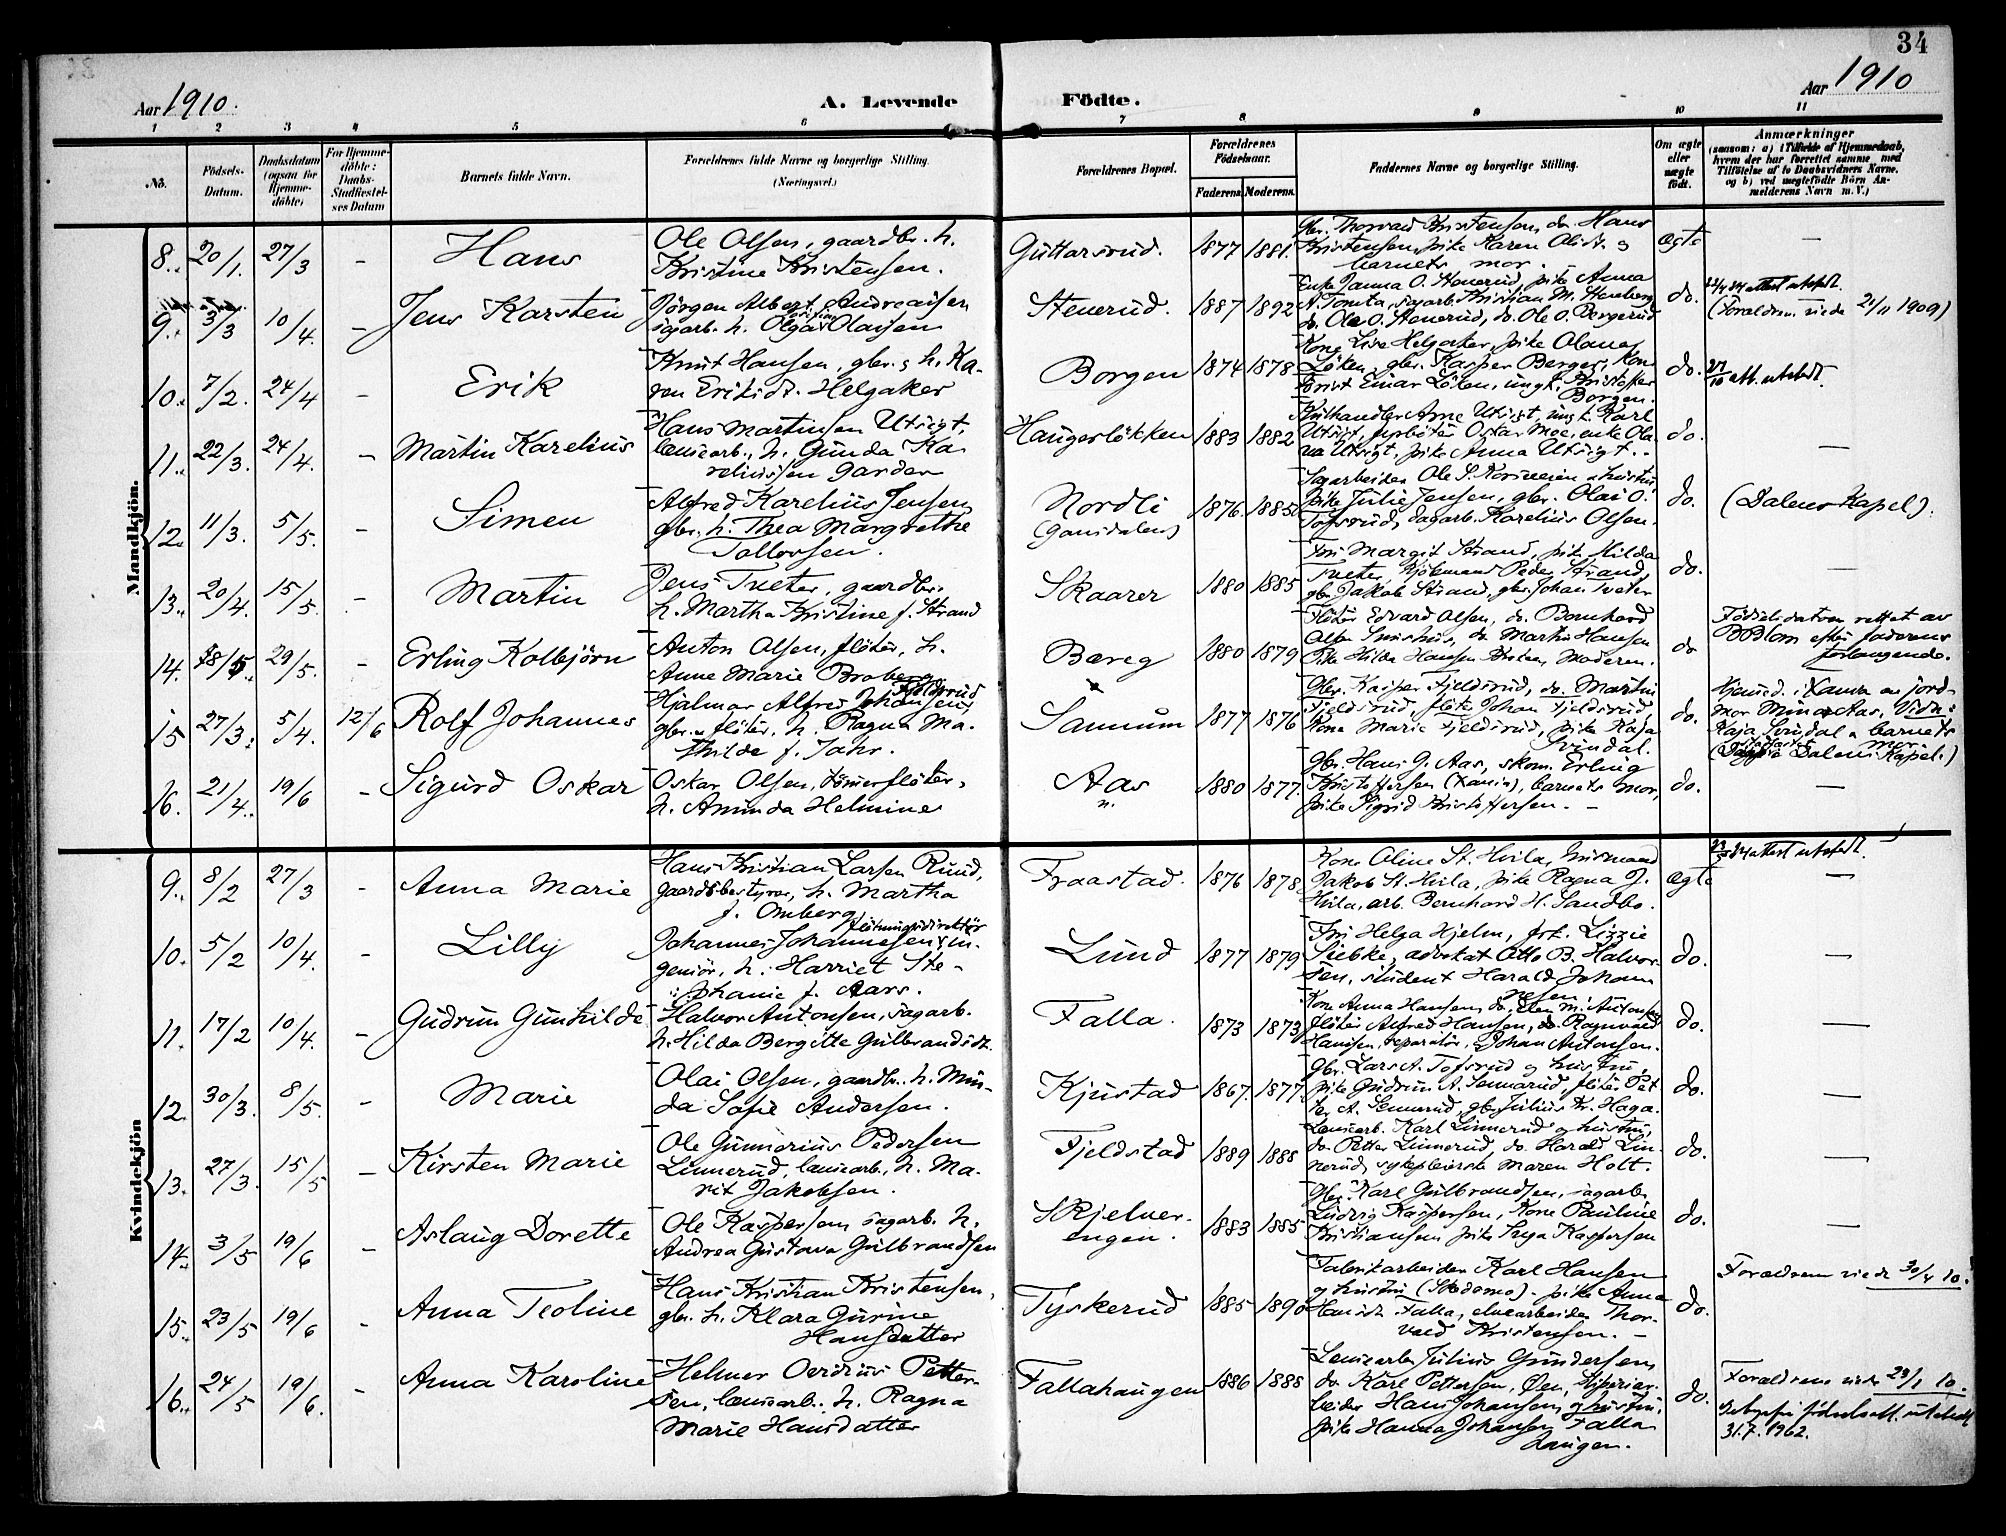 34
Aar 1910.
A. Levende
Födte.
Aar 1910
1 2 3 4 5 6 7 8 9 10 11
No.
Födsels-Datum.
Daabsdatum (ogsaa for Hjemme-döbte)
For Hjemme-döbte: Daabs-Stadfæstel-ses Datum
Barnets fulde Navn.
Forældrenes fulde Navne og borgerlige Stilling. (Næringsvei.)
Forældrenes Bopæl.
Forældrenes Födselsaar.
Faderens. Moderens.
Faddernes Navne og borgerlige Stilling.
Om ægte eller uægte født.
Anmærkninger
(saasom: a) i Tilfælde af Hjemmedaab, hvem der har forrettet samme, med Tilföielse af to Daabsvidners Navne, og b) ved uægtefödte Börn An-melderens Navn m. V.)
Mandkjön.
8. 20/1. 27/3 - Hans
Ole Olsen, gaardbr. h.
Kristine Kristensen.
Guttarsrud. 1877 1881.
Gbr. Thorvald Kristensen, do. Hans
Kristensen, pike Karen Olsdt. og
barnets mor.
ægte —
9. 3/3 10/4. - Jens Karsten
Jörgen Albert Andreassen
sagarb. h. Olga Olausen
Stenerud. 1887 1892
Enke Janna O. Stenerud, pike Anna
A. Tomta, sagarb. Kristian M. Haneborg
do. Ole O. Stenerud, do. Ole O. Borgerud
do. attest utstedt.
(Forældrene viede 21/11 1909)
10. 7/2. 24/4 - Erik
Knut Hansen, gbr. & h. Ka-
ren Eriksdt. Helgaker
Borgen 1874 1878
Kone Lise Helgaker, pike Olanes
Löken, gbr. Kasper Berger, kon-
torist Einar Löken, ungk. Kristoffer
Borgen.
do. 27/10 att. utstedt.
11. 22/3. 24/4. - Martin Karelius
Hans Martinsen Utsigt,
lensearb., h. Gunda Ka-
reliussen Garder
Haugerslökken 1883 1882
Kulhandler Arne Utsigt, ungk. Karl
Utsigt, fyrböter Oskar Moe, enke Ola-
va Utsigt, pike Anna Utsigt.
do. —
12. 11/3. 5/5. - Simen
Alfred Karelius Jensen
gbr. h. Thea Margrethe
Tollevsen.
Nordli
(Gansdalen)
1876. 1885
Sagarbeider Ole S. Korsveien & hustru
pike Julie Jensen, gbr. Olai O.
Tofsrud, sagarb. Karelius Olsen.
do. (Dalens Kapel).
13. 20/4. 15/5. - Martin
Jens Tveter, gaardbr.
h. Martha Kristine f. Strand
Skaarer 1880 1885
Fru Margit Strand, pike Hilda
Tveter, kjöbmand Peder Strand,
gbr. Jakob Strand, gbr. Johan Tveter
do. —
14. 18/5. 29/5. - Erling Kolbjörn
Anton Olsen, flöter, h.
Anne Marie Broberg
Bæreg 1880 1879
Flöter Edvard Olsen, do. Bernhard
Olsen Smishus, do. Martin Hansen
Pike Hilda Hansen Moderen.
do
Födselsdatoen rettet av
efter faderens
forlangende.
15 27/3. 5/4. 12/6 Rolf Johannes
Hjalmar Alfred Johansen Fjeldsrud
gbr. & flöter, h. Ragna Ma-
thilde f. Jahr.
Sannum 1877 1876
Gbr. Kasper Fjeldsrud, do. Martin
Fjeldsrud, flöter Johan Fjeldsrud
Kone Marie Fjeldsrud, pike Kaja
Svindal.
do.
Hjemmed. i Nanna av jord-
mor Mina Aas, Vidn:
Kaja Svindal & barnets
Mor.
(Stadfæstet Dalens Kapel.)
16. 21/4. 19/6 - Sigurd Oskar
Oskar Olsen, tömmerflöter,
h. Aminda Helmine
Aas 1880 1877.
Gbr. Hans G. Aas, skom. Erling
Kristoffersen, barnets mor,
pike Sigrid Kristoffersen. -
do. —
Kvindekjön
9. 8/2 27/3 - Anna Marie
Hans Kristian Larsen Ruud,
gaardsbestyrer, h. Martha
f. Omberg
Fraastad. 1876 1878
Kone Oline St. Hvila, husmand
Jakob St. Hvila, pike Ragna J.
Hvila, arb. Bernhard H. Sandbo.
ægte attest utstedt.
—
10. 5/2 10/4. - Lilly
flötningsdirektör
Johannes Johannesen, in-
geniör, h. Harriet Ste-
phanie f. Aars.
Lund 1877 1879
Fru Helga Hjelm, frk. Lizzie
Siebke, advokat Otto B. Halvor-
sen, student Harald Johan-
nesen
do. —
11. 17/2 10/4. - Gudrun Gunhilde
Halvor Antonsen, sagarb.
h. Hilda Bergitte Gulbrandsdt.
Falla. 1873 1873
Kone Anna Hansen, do. Ellen M. Antonsen
flöter Alfred Hansen, do. Ragnvald
Hansen, reparatör Johan Antonsen.
do. —
12. 30/3. 8/5. - Marie
Olai Olsen, gaardbr. h. Min-
da Sofie Andersen.
Kjustad 1867. 1877.
Gbr. Lars A. Tofsrud & hustru,
pike Gudrun A. Sennerud, flöter Pet-
ter A. Sennerud, gbr. Julius Kr. Haga.
do. —
13. 27/3. 15/5 - Kirsten Marie
Ole Gunnarius Pedersen
Linnerud, lensearb., h. Ma-
rit Jakobsen.
Fjeldstad 1889 1888
Lensearb. Karl Linnerud & hustru,
do. Petter Linnerud, do. Harald Lin-
nerud, sykepleierske Maren Holt.
do. —
14. 3/5 19/6 - Aslaug Dorette
Ole Kaspersen sagarb. h.
Andrea Gustava Gulbrandsen
Skjelver-
engen. 1883 1885
Gbr. Karl Gulbrandsen, sagarb.
Ludvig Kaspersen, Kone Pauline
Kristiansen pike Inga Kaspersen
do. —
15. 23/5 19/6 - Anna Teoline
Hans Kristian Kristensen,
gbr. h. Klara Gurine
Hansdatter
Tyskerud 1885 1890
Fabrikarbeider Karl Hansen
og hustru (Skedsmo). pike Anna
Hansdt. Falla, elvearbeider Thor-
vald Kristensen. -
do.
Forældrene viede 30/4 10.
16. 24/5 19/6. - Anna Karoline
Helmer Ovidius Petter-
sen, lensearb. h. Ragna
Marie Hansdatter
Fallahaugen 1886 1888
Lensearb. Julius Gundersen,
do. Karl Pettersen, Øen, sliperiar-
beider Hans Johansen og hustru,
pike Hanna Johansen Falla-
haugen.
do.
Forældrene viede 29/1 10.
Gebyrfri födselsatt. utstedt
31.7.1962.